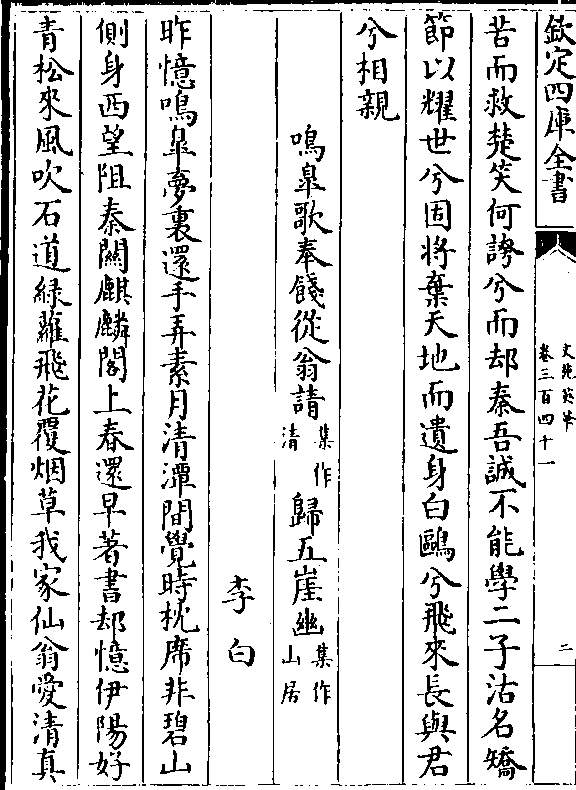 欽定四庫全書
文苑英華
卷三百四十一
二
苦而救楚笑何誇兮而却秦吾誠不能學二子沽名矯
節以耀世兮固將棄天地而遺身白鷗兮飛來長與君
兮相親
鳴臯歌奉餞從翁請集作清歸五崖幽集作山居
李白
昨憶鳴臯夢裏還手弄素月清潭間覺時枕席非碧山
側身西望阻秦闗麒麟閣上春還早著書却憶伊陽好
青松來風吹石道綠蘿飛花覆烟草我家仙翁愛清真